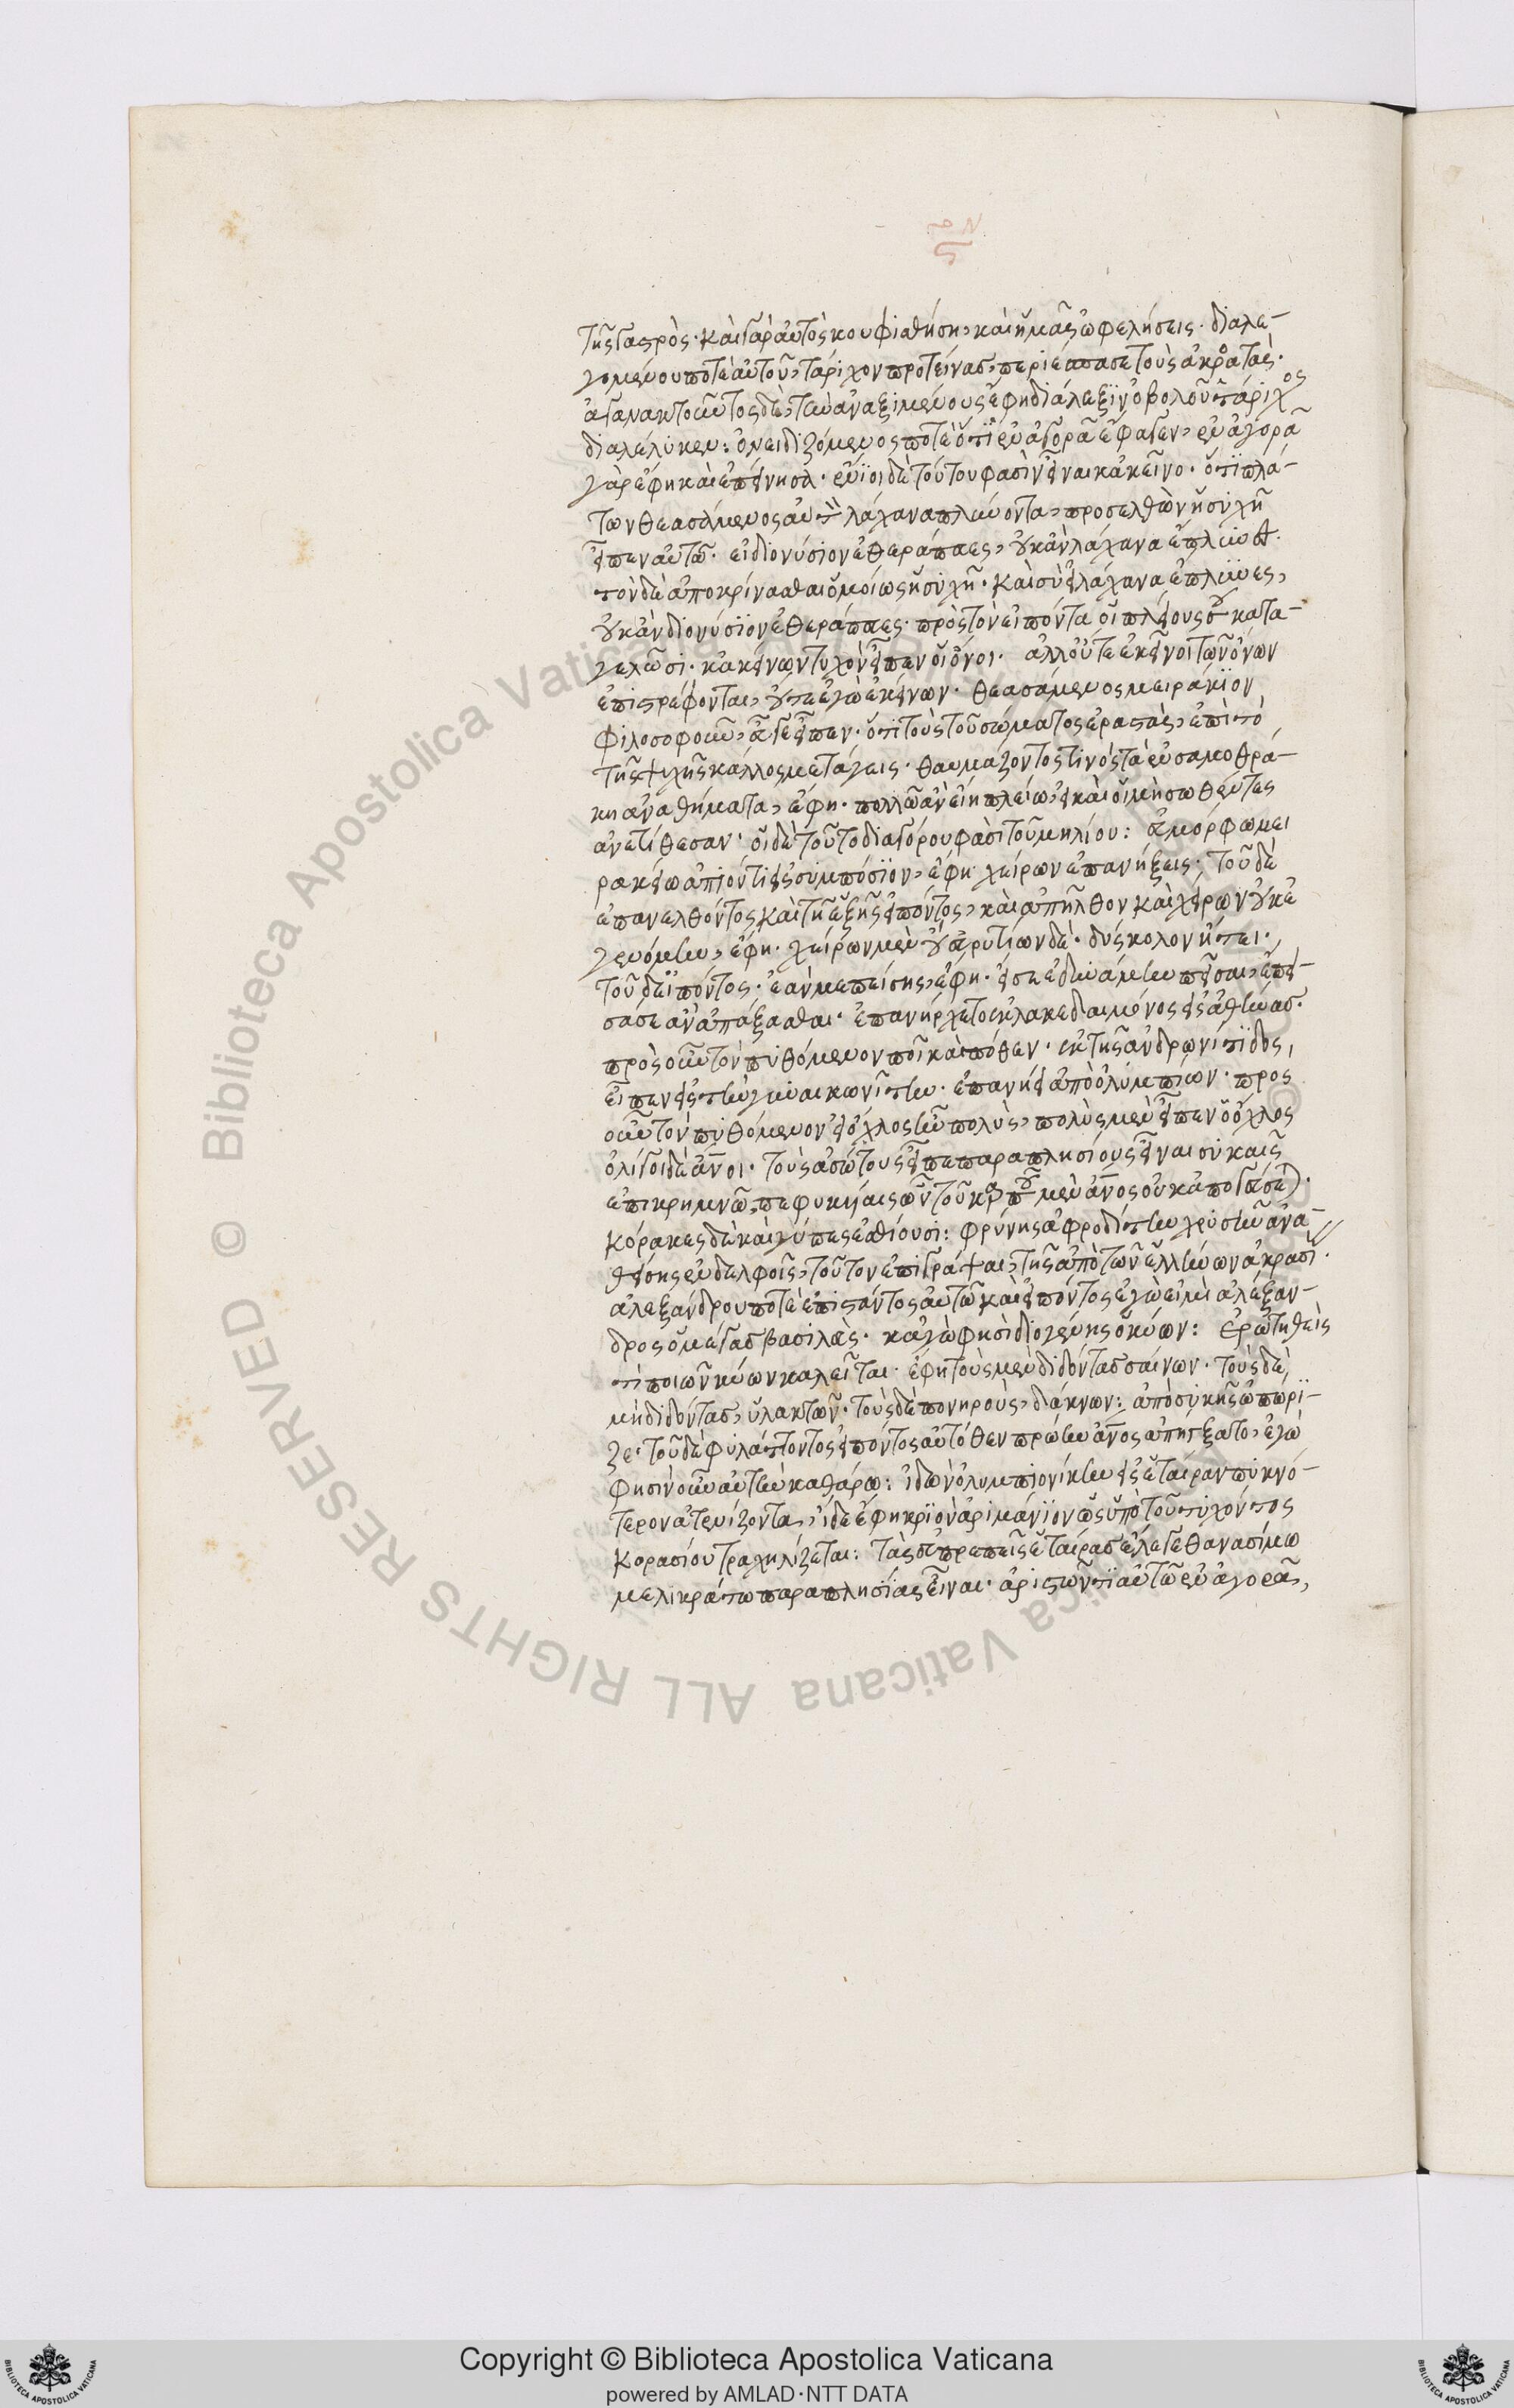 τῆς γαστρός· καὶ γὰρ αὐτὸς κουφισθήση, καὶ ἡμᾶς ὠφελήσεις. διαλε-
γομένου ποτὲ αὐτοῦ, τάριχον προτείνας περιέσπασε τοὺς ἀκροατάς.
ἀγανακτοῦντος δὲ, τὴν ἀναξιμένους ἔφη διάλεξιν ὀβολοῦ τάριχος
διαλέλυκεν: ὀνειδιζόμενος ποτὲ ὅτι ἐν ἀγορᾶ ἔφαγεν, ἐν ἀγορᾶ
γὰρ ἔφη καὶ ἐπείνησα. ἔνιοι δὲ τούτου φασὶν εἶναι κἀκεῖνο. ὅτι πλά-
των θεασάμενος αὐτὸν λάχανα πλύνοντα, προσελθὼν ἡσυχῆ
εἶπεν αὐτῶ. εἰ διονύσιον ἐθεράπευες, οὐκ ἂν λάχανα ἔπλυνες.
τὸν δὲ ἀποκρίνασθαι ὁμοίως ἡσυχῆ. καὶ σὺ εἰ λάχανα ἔπλυνες,
οὐκ ἂν διονύσιον ἐθεράπευες. πρὸς τὸν εἰπόντα οἱ πλείους σου κατα-
γελῶσι. κἀκείνων τυχὸν εἶπεν οἱ ὄνοι. ἀλλ' οὔτε ἐκεῖνοι τῶν ὄνων
ἐπιστρέφονται, οὔτε ἐγὼ ἐκείνων. θεασάμενος μειράκιον
φιλοσοφοῦν, εὖγε εἶπεν. ὅτι τοὺς τοῦ σώματος ἐραστὰς, ἐπὶ τὸ
τῆς ψυχῆς κάλλος μετάγεις. θαυμάζοντός τινος τὰ ἐν σαμοθρά-
κη ἀναθήματα, ἔφη. πολλῶ ἂν εἴη πλείω εἰ καὶ οἱ μὴ σωθέντες
ἀνετίθεσαν. οἱ δὲ τοῦτο διαγόρου φασὶ τοῦ μηλίου: εὐμόρφω μει
ρακείω ἀπιόντι εἰς συμπόσιον, ἔφη χείρων ἐπανήξεις. τοῦ δὲ
ἐπανελθόντος καὶ τῆ ἑξῆς εἰπόντος, καὶ ἀπῆλθον καὶ χείρων οὐκ ἐ
γενόμην, ἔφη. χείρων μὲν οὔ εὐρυτίων δέ. δύσκολον ἤτει.
τοῦ δ' εἰπόντος. ἐάν με πείσης, ἔφη. εἴ σε ἐδυνάμην πεῖσαι, ἔπει-
σά σε ἂν ἀπάξασθαι. ἐπανήρχετο ἐκ λακεδαίμονος εἰς ἀθήνας.
πρὸς οὖν τὸν πυθόμενον ποῖ καὶ πόθεν. ἐκ τῆς ἀνδρωνίτιδος,
εἶπεν εἰς τὴν γυναικωνῖτιν. ἐπανήει ἀπὸ ὀλυμπίων. πρὸς
οὖν τὸν πυθόμενον εἰ ὄχλος ἦν πολὺς, πολὺς μὲν εἶπεν ὁ ὄχλος
ὀλίγοι δὲ ἄνοι. τοὺς ἀσώτους εἶπε παραπλησίους εἶναι συκαῖς
ἐπὶ κρημνῶ πεφυκυίαις ὧν τοῦ καρποῦ μὲν ἄνος οὐκ ἀπογεύεται.
κόρακες δὲ καὶ γύπες ἐσθίουσι: φρύνης ἀφροδίτην χρυσῆν ἀνα-
θείσης ἐν δελφοῖς, τοῦτον ἐπιγράψαι, τῆς ἀπὸ τῶν ἑλλήνων ἀκρασί.
ἀλεξάνδρου ποτὲ ἐπιστάντος αὐτῶ καὶ εἰπόντος ἐγώ εἰμι ἀλέξαν-
δρος ὁ μέγας βασιλεὺς. κἀγὼ φησὶ διογένης ὁ κύων: ἐρωτηθεὶς
τί ποιῶν κύων καλεῖται. ἔφη τοὺς μὲν διδόντας σαίνων. τοὺς δὲ
μὴ διδόντας, ὑλακτῶν. τοὺς δὲ πονηροὺς, δάκνων: ἀπὸ συκῆς ὠπώρι-
ζε. τοῦ δὲ φυλάττοντος εἰπόντος αὐτόθεν πρώην ἄνος ἀπήγξατο, ἐγὼ
φησὶν οὖν αὐτὴν καθάρω: ἰδὼν ὀλυμπιονίκην εἰς ἑταίραν πυκνό-
τερον ἀτενίζοντα, ἴδε ἔφη κριὸν ἀριμάνιον ὡς ὑπὸ τοῦ τυχόντος
κορασίου τραχηλίζεται: τὰς εὐπρεπεῖς ἑταίρας ἔλεγε θανασίμω
μελικράτω παραπλησίας εἶναι. ἀριστῶντι αὐτῶ ἐν ἀγορᾶ,